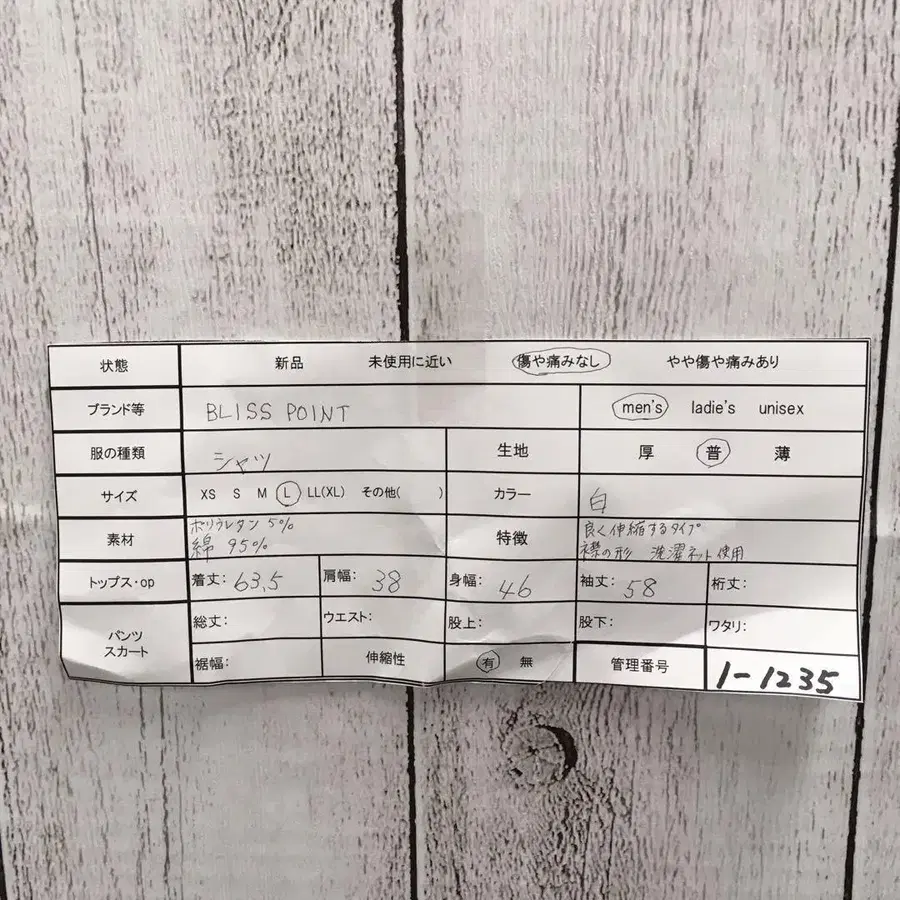 状態 新品 未使用に近い 傷や痛みなし やや傷や痛みあり
ブランド等 BLISS POINT men's ladie's unisex
服の種類 シャツ 生地 厚 普 薄
サイズ XS S M L LL(XL) その他( ) カラー 白
素材 ポリウレタン 5% 特徴 良く伸縮するタイプ
綿 95% 襟の形 洗濯ネット使用
トップス・op 着丈: 63.5 肩幅: 38 身幅: 46 袖丈: 58 裄丈:
パンツ 総丈: ウエスト: 股上: 股下: ワタリ:
スカート 裾幅: 伸縮性 有 無 管理番号 1-1235